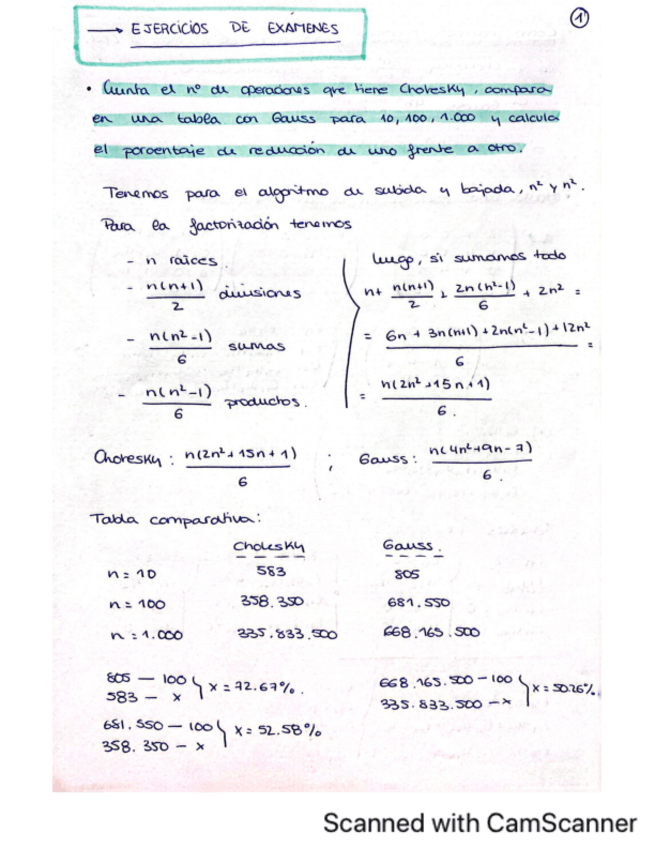 → EJERCICIOS DE EXÁMENES
1
· Cuenta el nº de operaciones que tiene Cholesky, compara
en una tabla con Gauss para 10, 100, 1.000 y calcula
el porcentaje de reducción de uno frente a otro.
Tenemos para el algoritmo de subida y bajada, n² y n².
Para la factorización tenemos
- n raíces.
- n(n+1)/2 divisiones
- n(n²-1)/6 sumas
- n(n²-1)/6 productos.
luego, si sumamos todo
n+ n(n+1)/2 + 2n(n²-1)/6 + 2n² =
= 6n + 3n(n+1) + 2n(n²-1) + 12n²/6 =
= n(2n²+15n+1)/6.
Cholesky: n(2n²+15n+1)/6 ; Gauss: n(4n²+9n-7)/6.
Tabla comparativa:
Cholesky Gauss.
n = 10 583 805
n = 100 358.350 681.550
n = 1.000 335.833.500 668.165.500
805 — 100
583 — x
x = 72.67%.
668.165.500 — 100
335.833.500 — x
x = 50.26%.
681.550 — 100
358.350 — x
x = 52.58%
Scanned with CamScanner